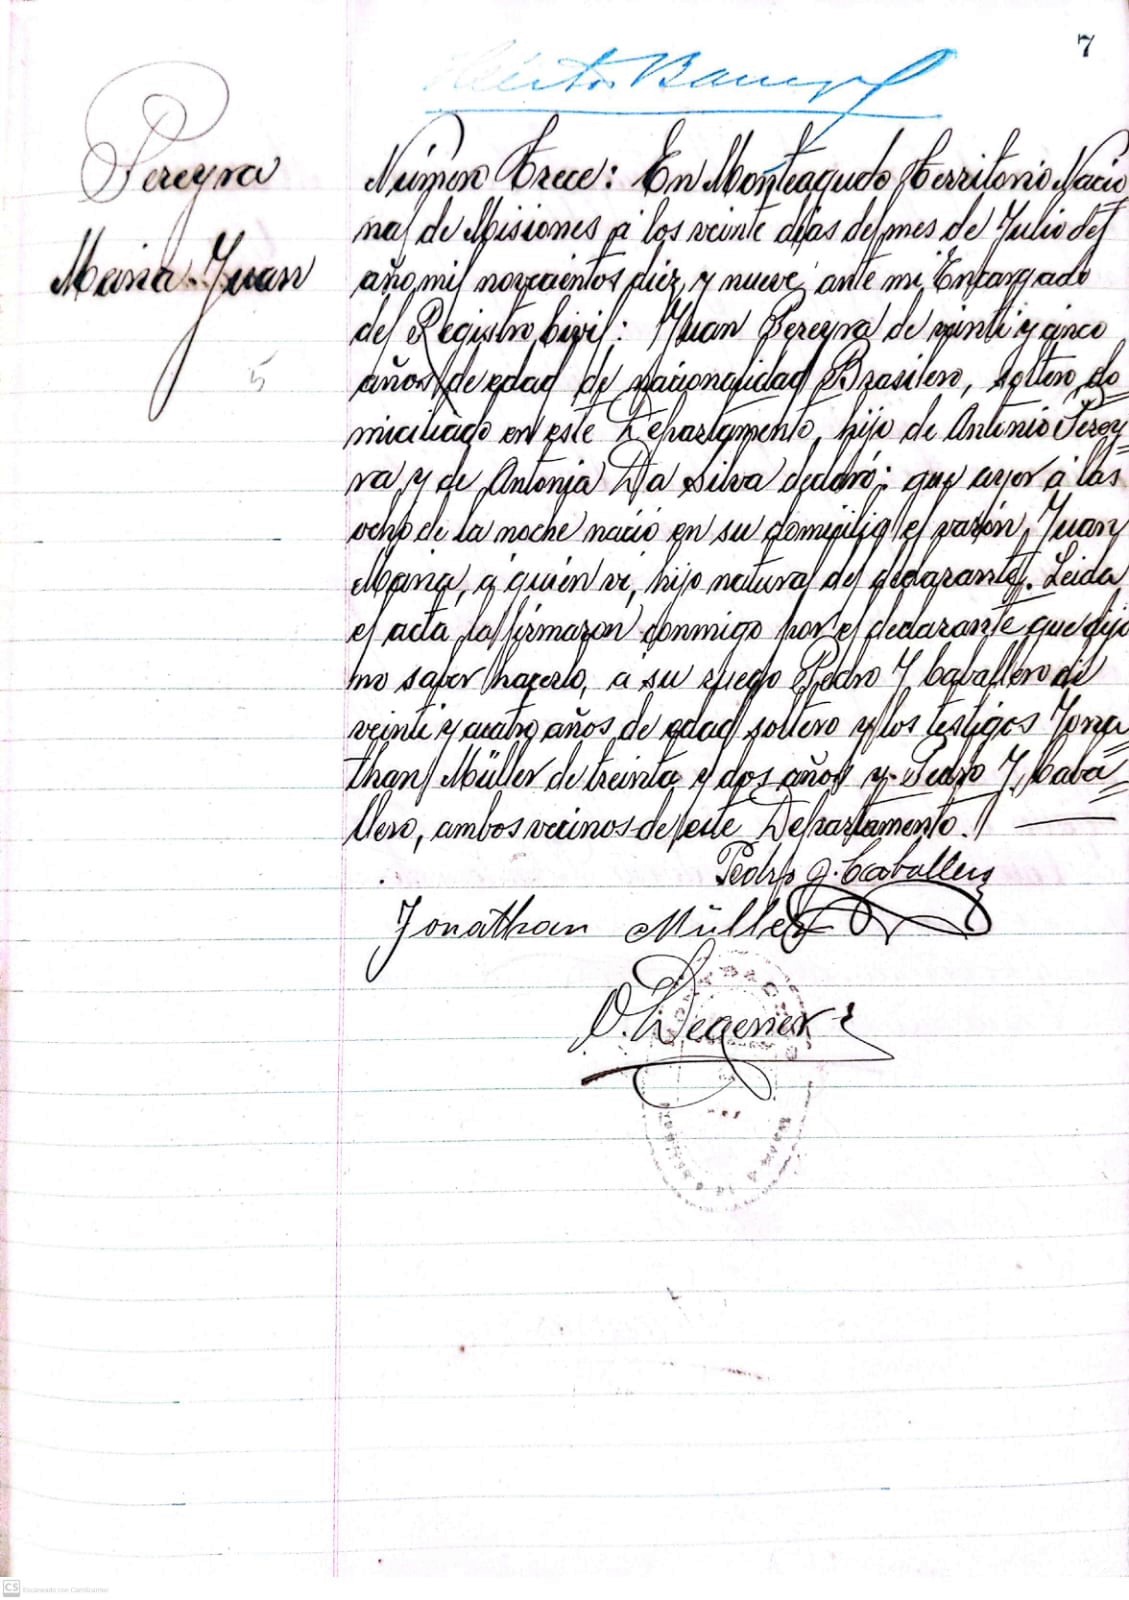 7
Pereyra
Maria Juan
5
Número Trece: En Monteagudo Territorio Nacio
nal de Misiones á los veinte dias del mes de Julio del
año mil novecientos diez y nueve, ante mi Encargado
del Registro Civil: Juan Pereyra de veinti y cinco
años de edad de nacionalidad Brasilero, soltero, do=
miciliado en este Departamento, hijo de Antonio Perey=
ra y de Antonia Da Silva declaró: que ayer á las
ocho de la noche nació en su domicilio el varón, Juan
Maria, á quién vi, hijo natural del declarante. Leida
el acta la firmaron conmigo por el declarante que dijo
no saber hacerlo, á su ruego Pedro J Caballero de
veinti y cuatro años de edad soltero y los testigos Jona=
than Müller de treinta y dos años y Pedro J. Caba=
llero, ambos vecinos de este Departamento.
Pedro J. Caballero
Jonathan Müller
O. Degener
CS Escaneado con CamScanner